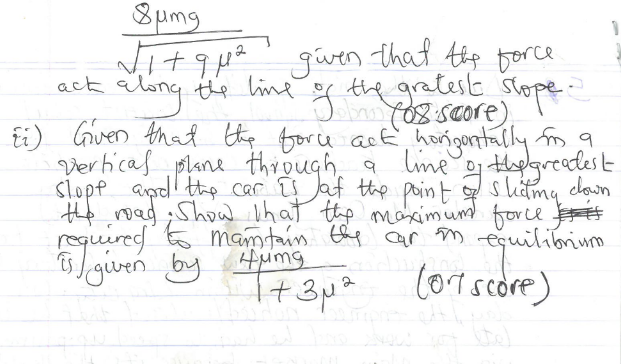 8μmg
√1+9μ² given that the force
act along the line of the gratest slope.
(08 score)
ii) Given that the force act horizontally in a
vertical plane through a line of the greatest
slope and the car is at the point of sliding down
the road. Show that the maximum force
required to maintain the car in equilibrium
is given by 4μmg
1+3μ² (07 score)